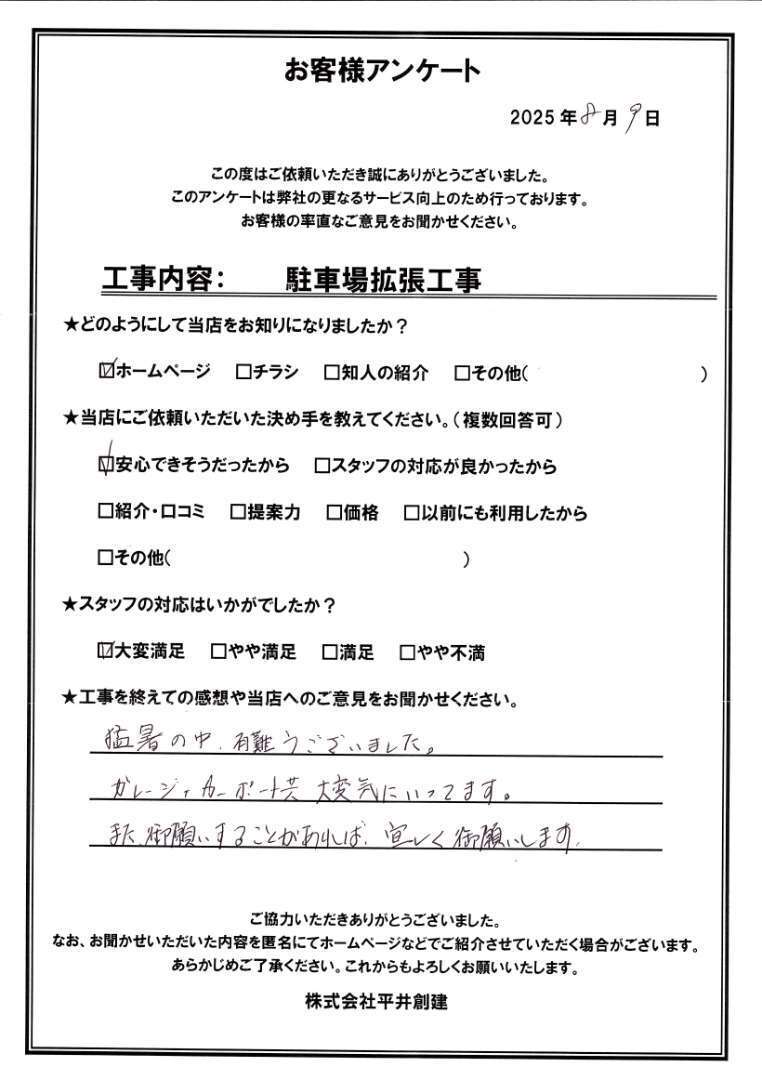 お客様アンケート
2025年8月9日
この度はご依頼いただき誠にありがとうございました。
このアンケートは弊社の更なるサービス向上のため行っております。
お客様の率直なご意見をお聞かせください。
工事内容： 駐車場拡張工事
★どのようにして当店をお知りになりましたか？
☑ホームページ □チラシ □知人の紹介 □その他( )
★当店にご依頼いただいた決め手を教えてください。(複数回答可)
☑安心できそうだったから □スタッフの対応が良かったから
□紹介・口コミ □提案力 □価格 □以前にも利用したから
□その他( )
★スタッフの対応はいかがでしたか？
☑大変満足 □やや満足 □満足 □やや不満
★工事を終えての感想や当店へのご意見をお聞かせください。
猛暑の中、有難うございました。
ガレージ、カーポート共 大変気にいってます。
また、御願いすることがあれば、宜しく御願いします。
ご協力いただきありがとうございました。
なお、お聞かせいただいた内容を匿名にてホームページなどでご紹介させていただく場合がございます。
あらかじめご了承ください。これからもよろしくお願いいたします。
株式会社平井創建